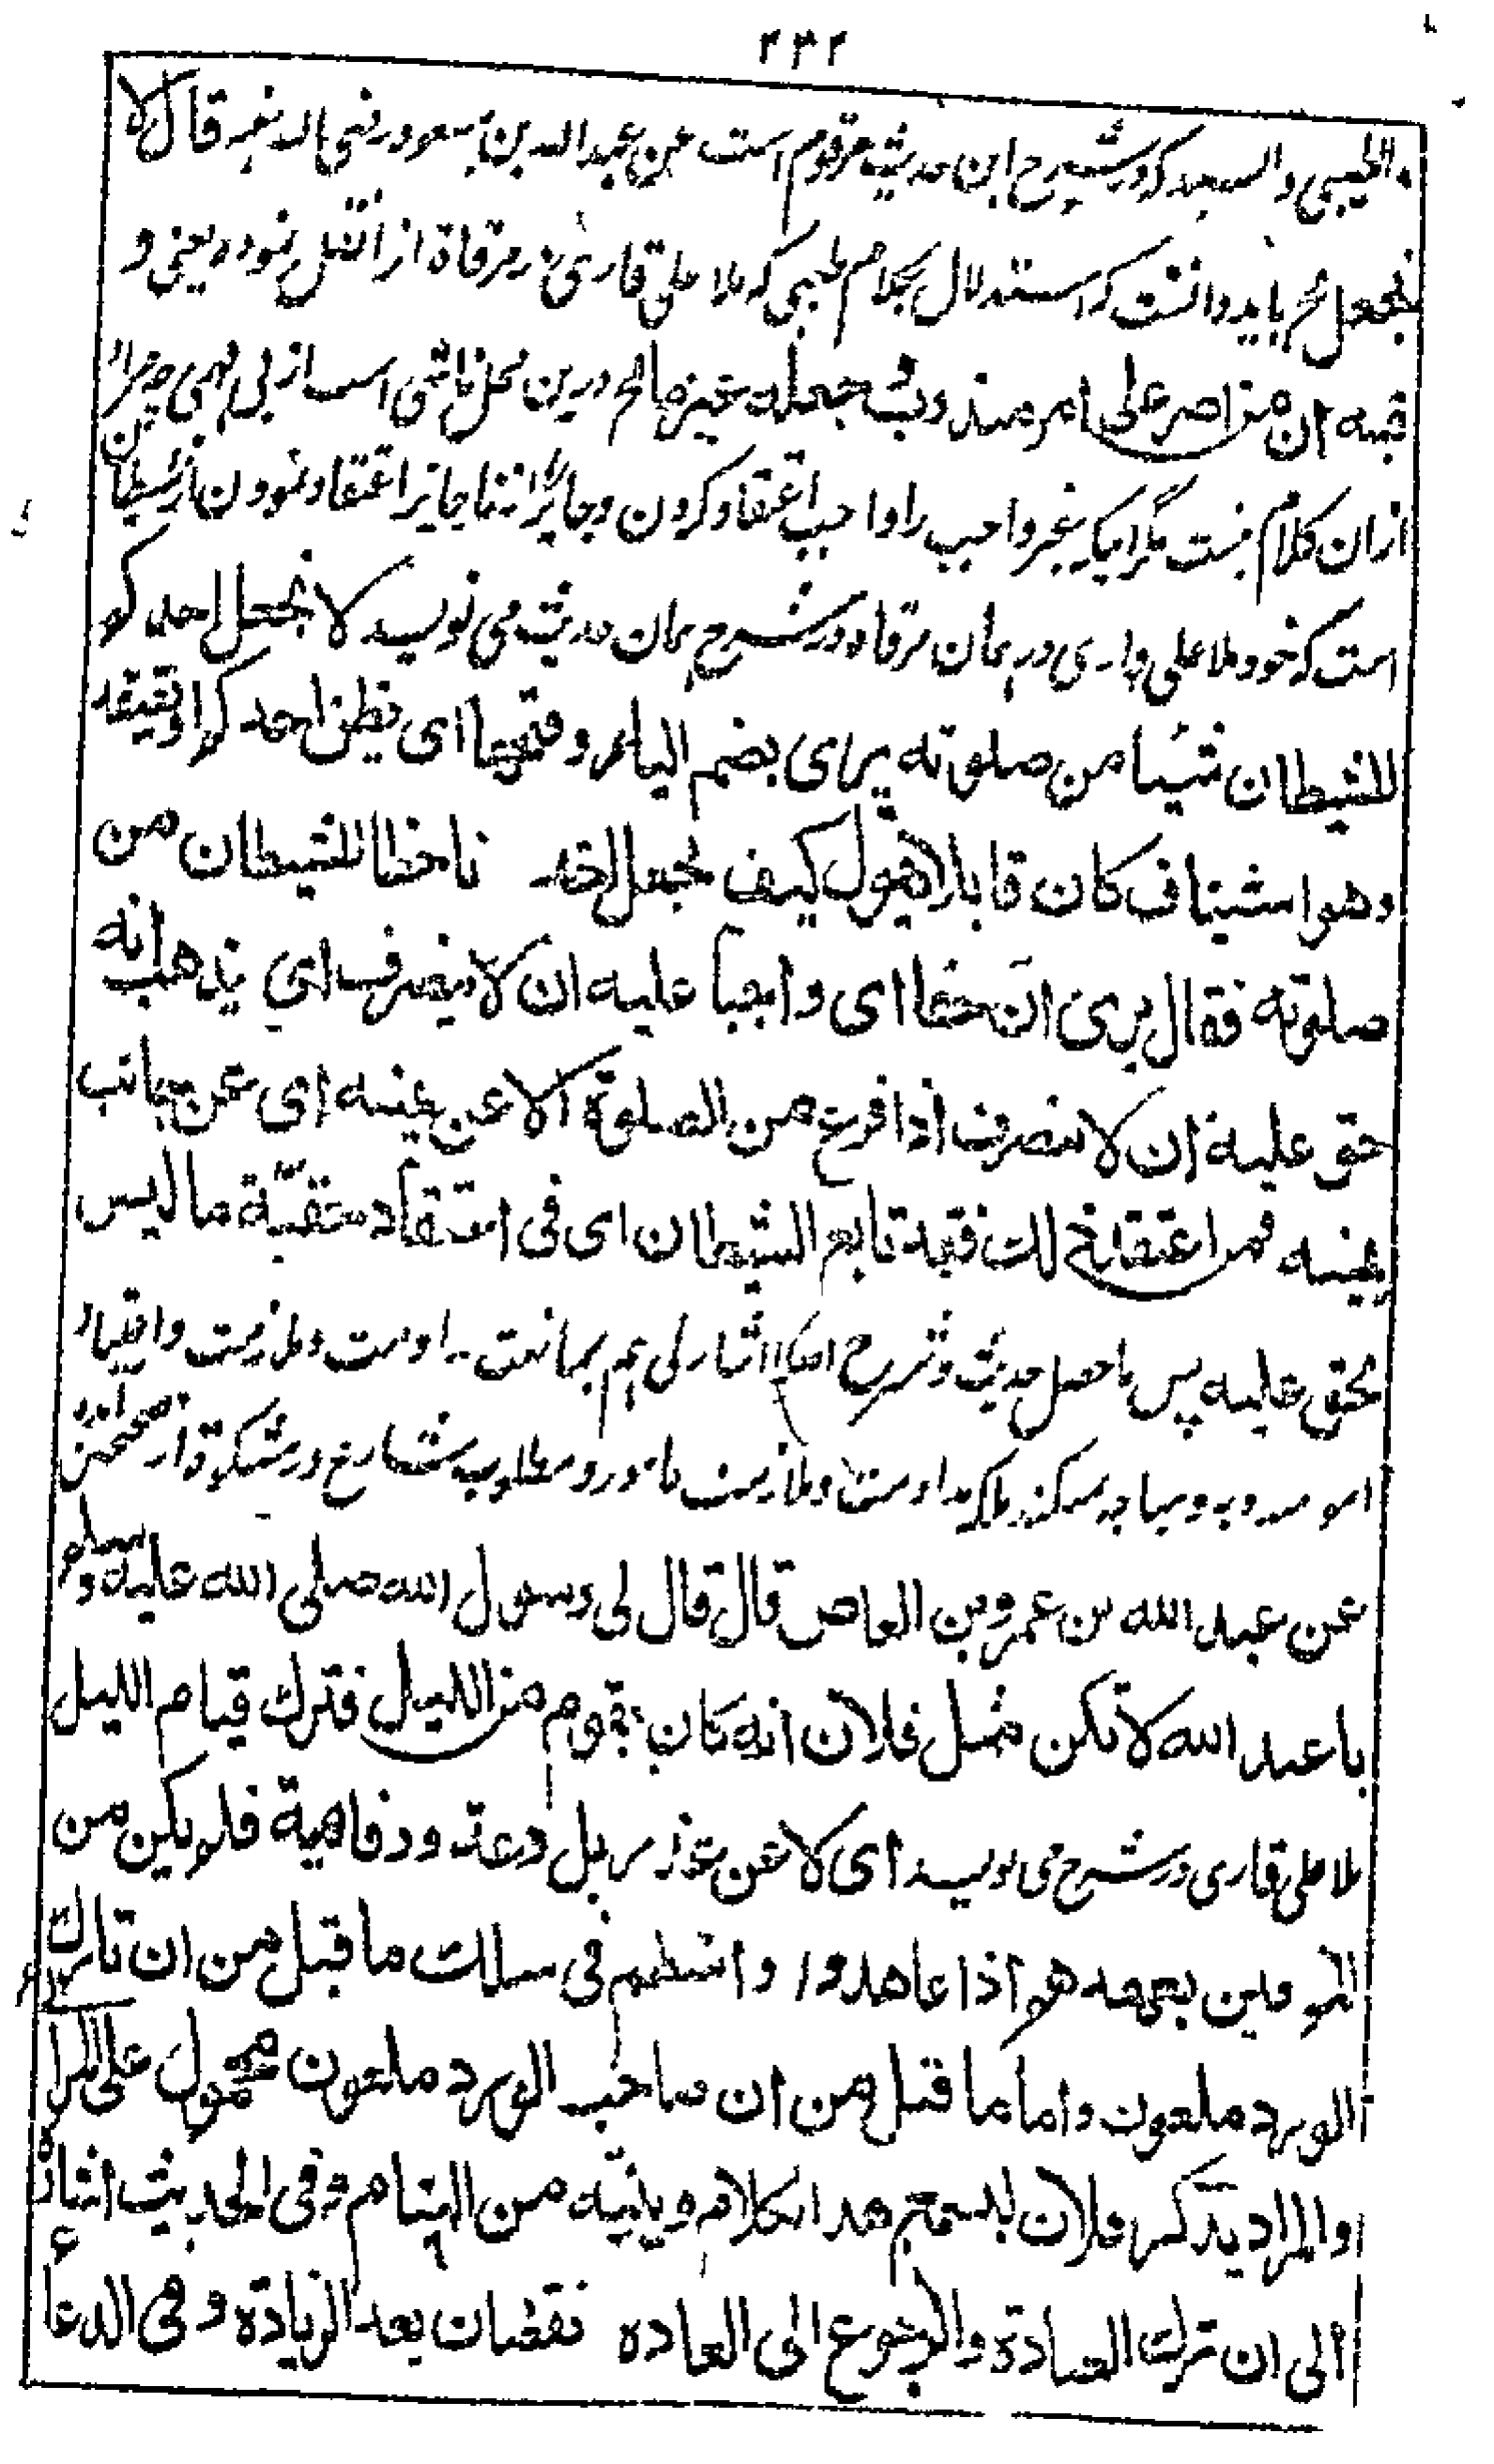 ۲۳۲
الطیبی والسید که در شرح این حدیث مرقوم است عن عبد الله بن مسعود رضی الله عنه قال لا
یجعل الخ باید دانست که استدلال بکلام طیبی که ملا علی قاری در مرقاة از ان نقل نموده یعنی و
فیه ان من اصر علی امر مندوب و جعله عزما لخ درین محل ناشی است از بی فهمی چه مراد
ازان کلام نیست مگر اینکه غیر واجب را واجب اعتقاد کردن و جائز را ناجایز اعتقاد نمودن از شیطان
است که خود ملا علی قاری در همان مرقاة در شرح همان حدیث می نویسد لا یجعل احدکم
للشیطان شیئا من صلوته یری بضم الیاء و فتحها ای یظن احدکم او یعتقد
وهو استیناف کان قایلا یقول کیف یجعل احدنا حظا للشیطان من
صلوته فقال یری ان حقا ای واجبا علیه ان لا ینصرف ای یذهب انه
حق علیه ان لا ینصرف اذا فرغ من الصلوة الا عن یمینه ای عن جانب
یمینه فمن اعتقد ذلك فقد تابع الشیطان فی اعتقاد حقیة ما لیس
بحق علیه پس ماحصل حدیث و شرح مداومت و ملازمت و اختیار
امور مندوبه و مباحه نمیکند بلکه مداومت و ملازمت مامور و مطلوب شارع در مشکوة از صحیحین آورده
عن عبد الله بن عمرو بن العاص قال قال لی رسول الله صلی الله علیه وسلم
یا عبد الله لا تکن مثل فلان انه کان یقوم من اللیل فترك قیام اللیل
ملا علی قاری در شرح می نویسد ای لا عن عذر بل دعة و رفاهیة فلم یکن من
الموفین بعهدهم اذا عاهدوا وانتظم فی سلك ما قیل من ان تارك
الورد ملعون واما ما قیل من ان صاحب الورد ملعون محمول علی المرائی
والمراد یذکر فلان لیسمع هذا الکلام وینتبه من المنام وفی الحدیث اشارة
الی ان ترك العبادة والرجوع الی العاده نقصان بعد الزیادة وفی الدعاء